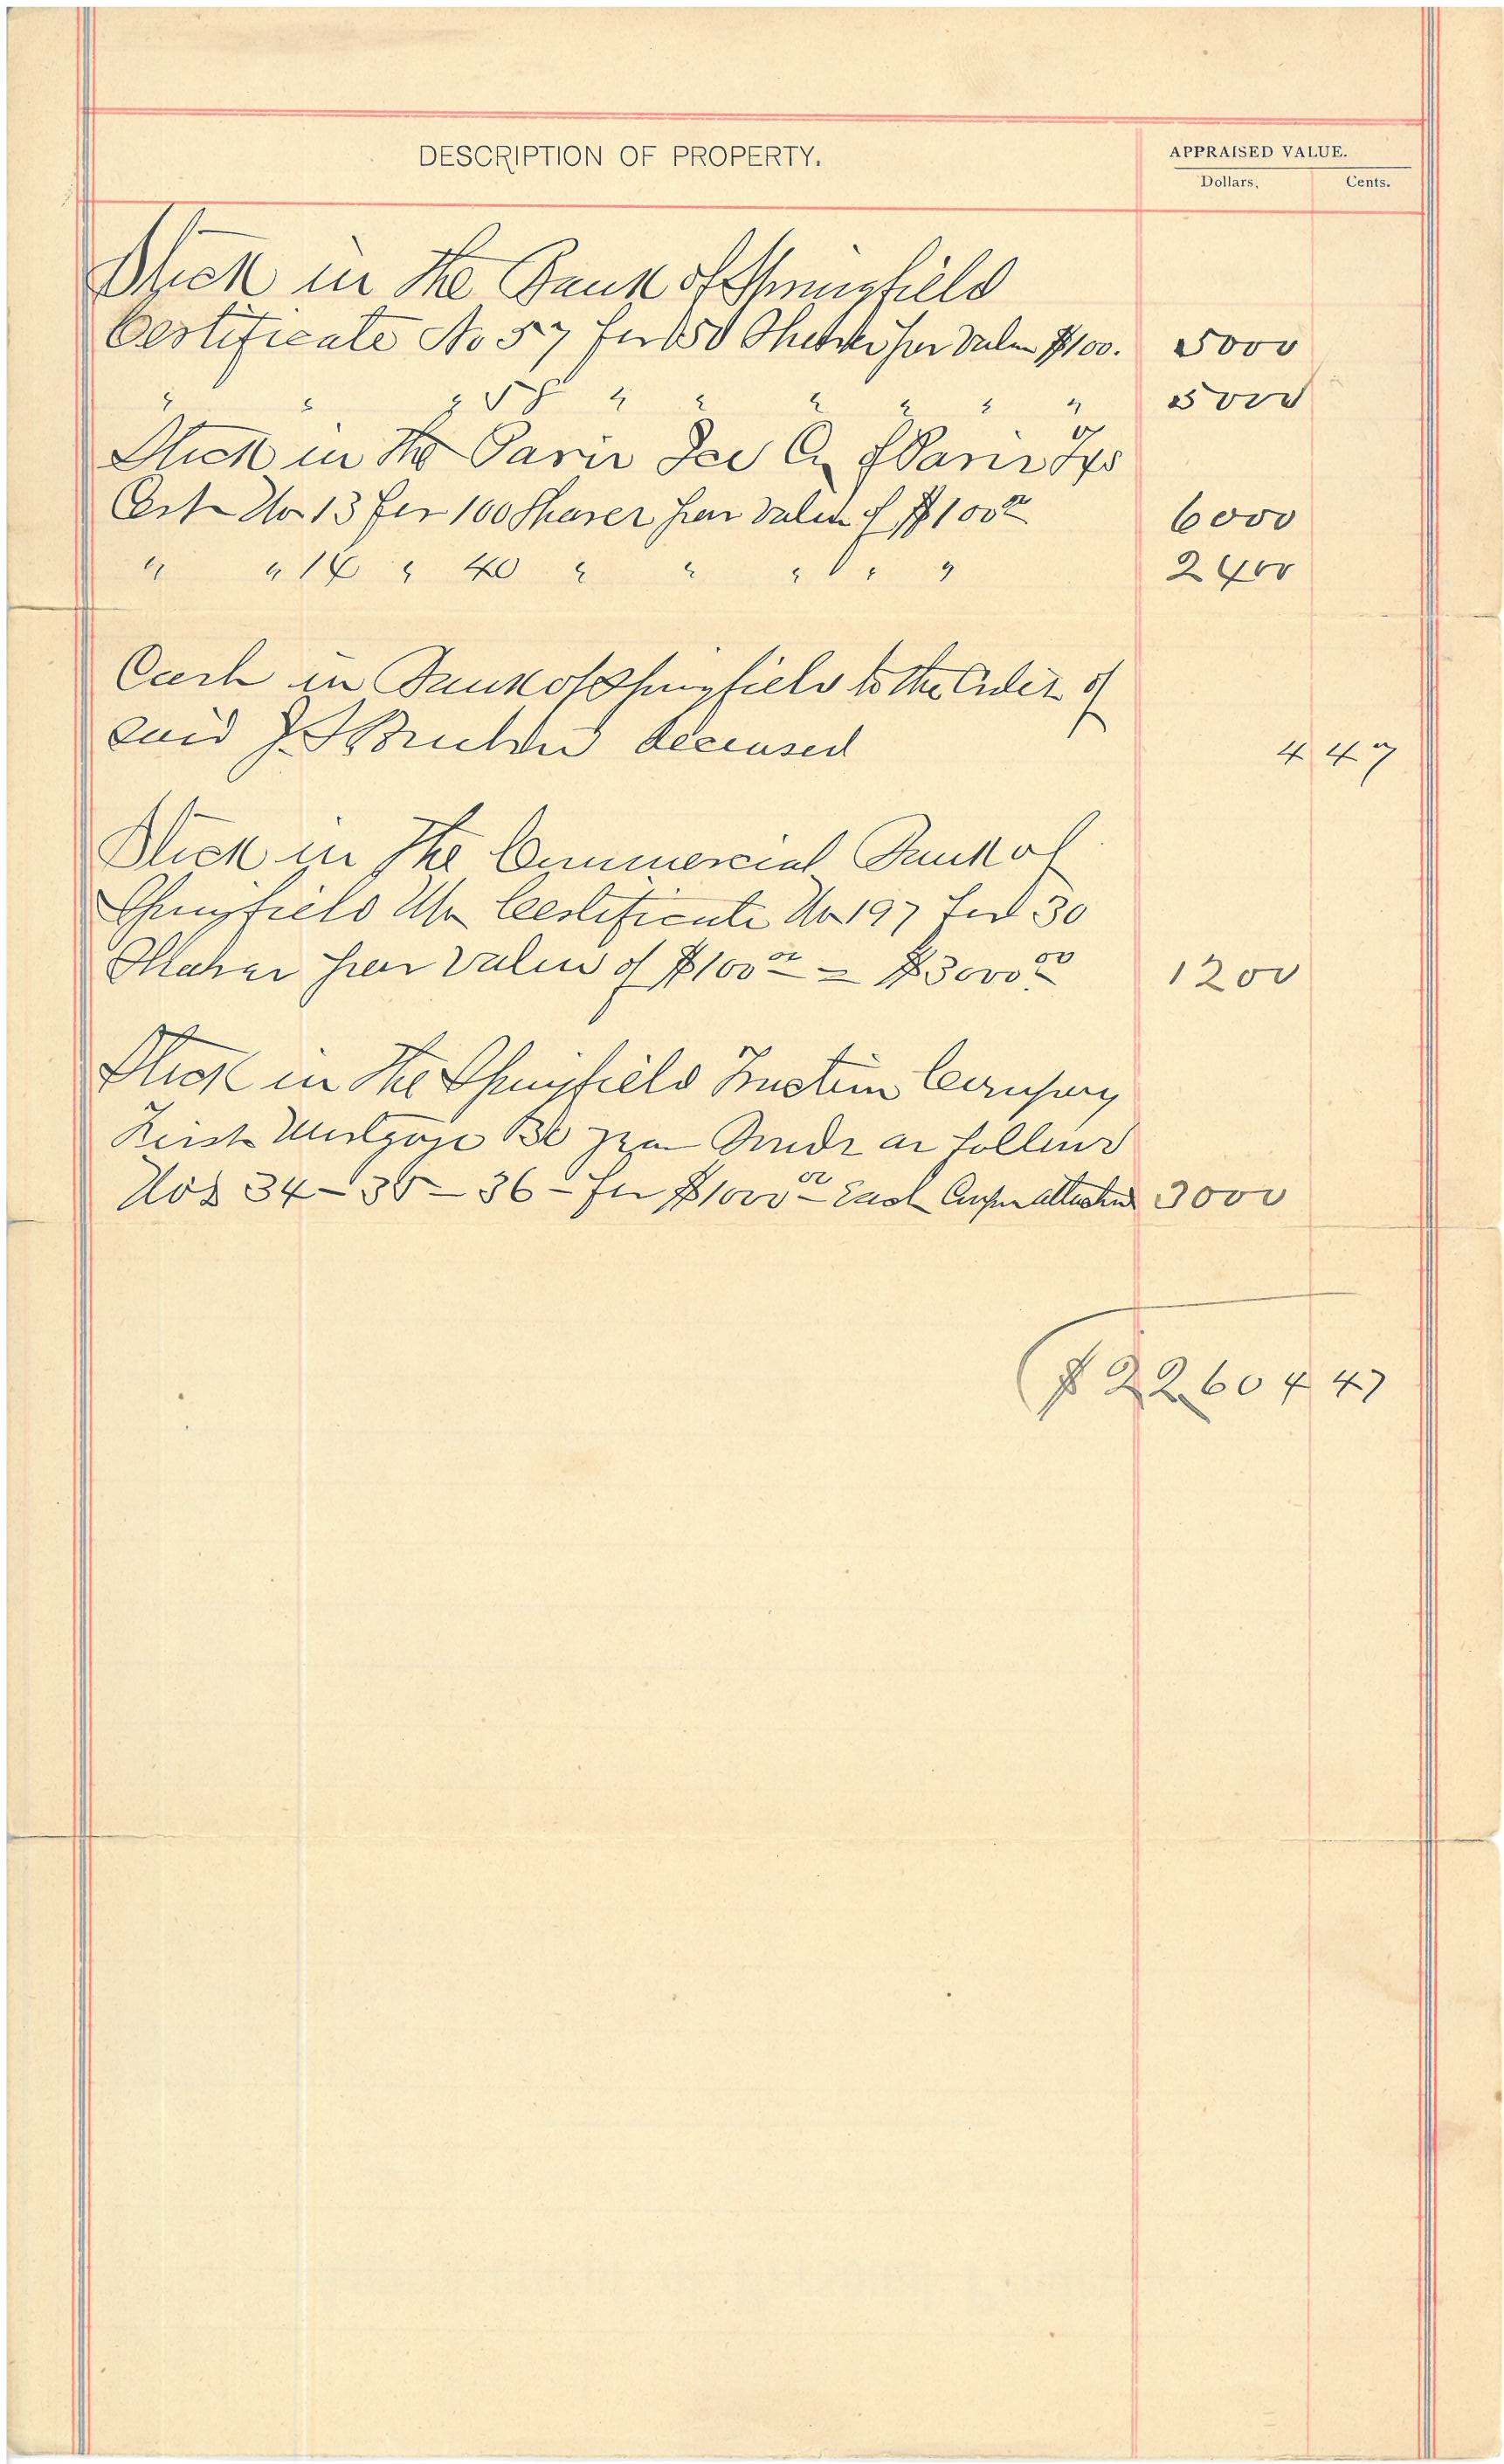 DESCRIPTION OF PROPERTY.
APPRAISED VALUE.
Dollars. Cents.
Stock in the Bank of Springfield
Certificate No 57 for 50 Shares par Value $100. 5000
" " " 58 " " " " " " 5000
Stock in the Paris Ice Co of Paris
Cert No 13 for 100 Shares par Value of $100 00 6000
" " 14 " 40 " " " " " 2400
Cash in Bank of Springfield to the Order of
said deceased 4 47
Stock in The Commercial Bank of
Springfield Certificate No 197 for 30
Shares par Value of $100 00 = $3000 00 1200
Stock in The Springfield Company
First Mortgage Bonds as follows
Nos 34 - 35 - 36 - for $1000 00 Each 3000
$22604 47